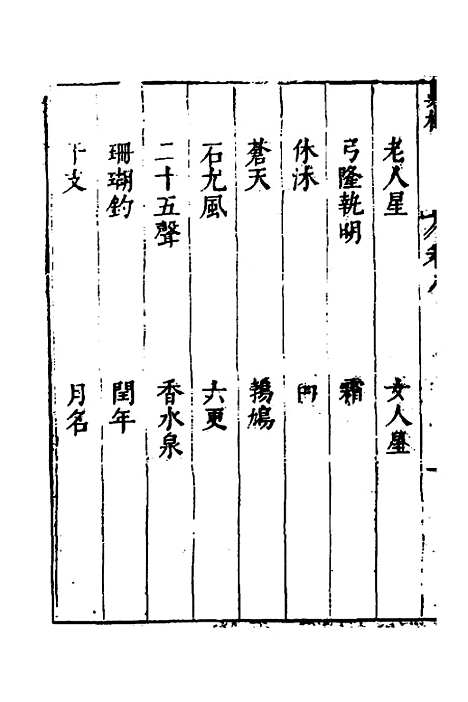 老人星 女人星
弓隆執明 霜
休沐
蒼天 鶷鳩
石尤風 六更
二十五聲 香水泉
珊瑚鈞 閏年
干支 月名